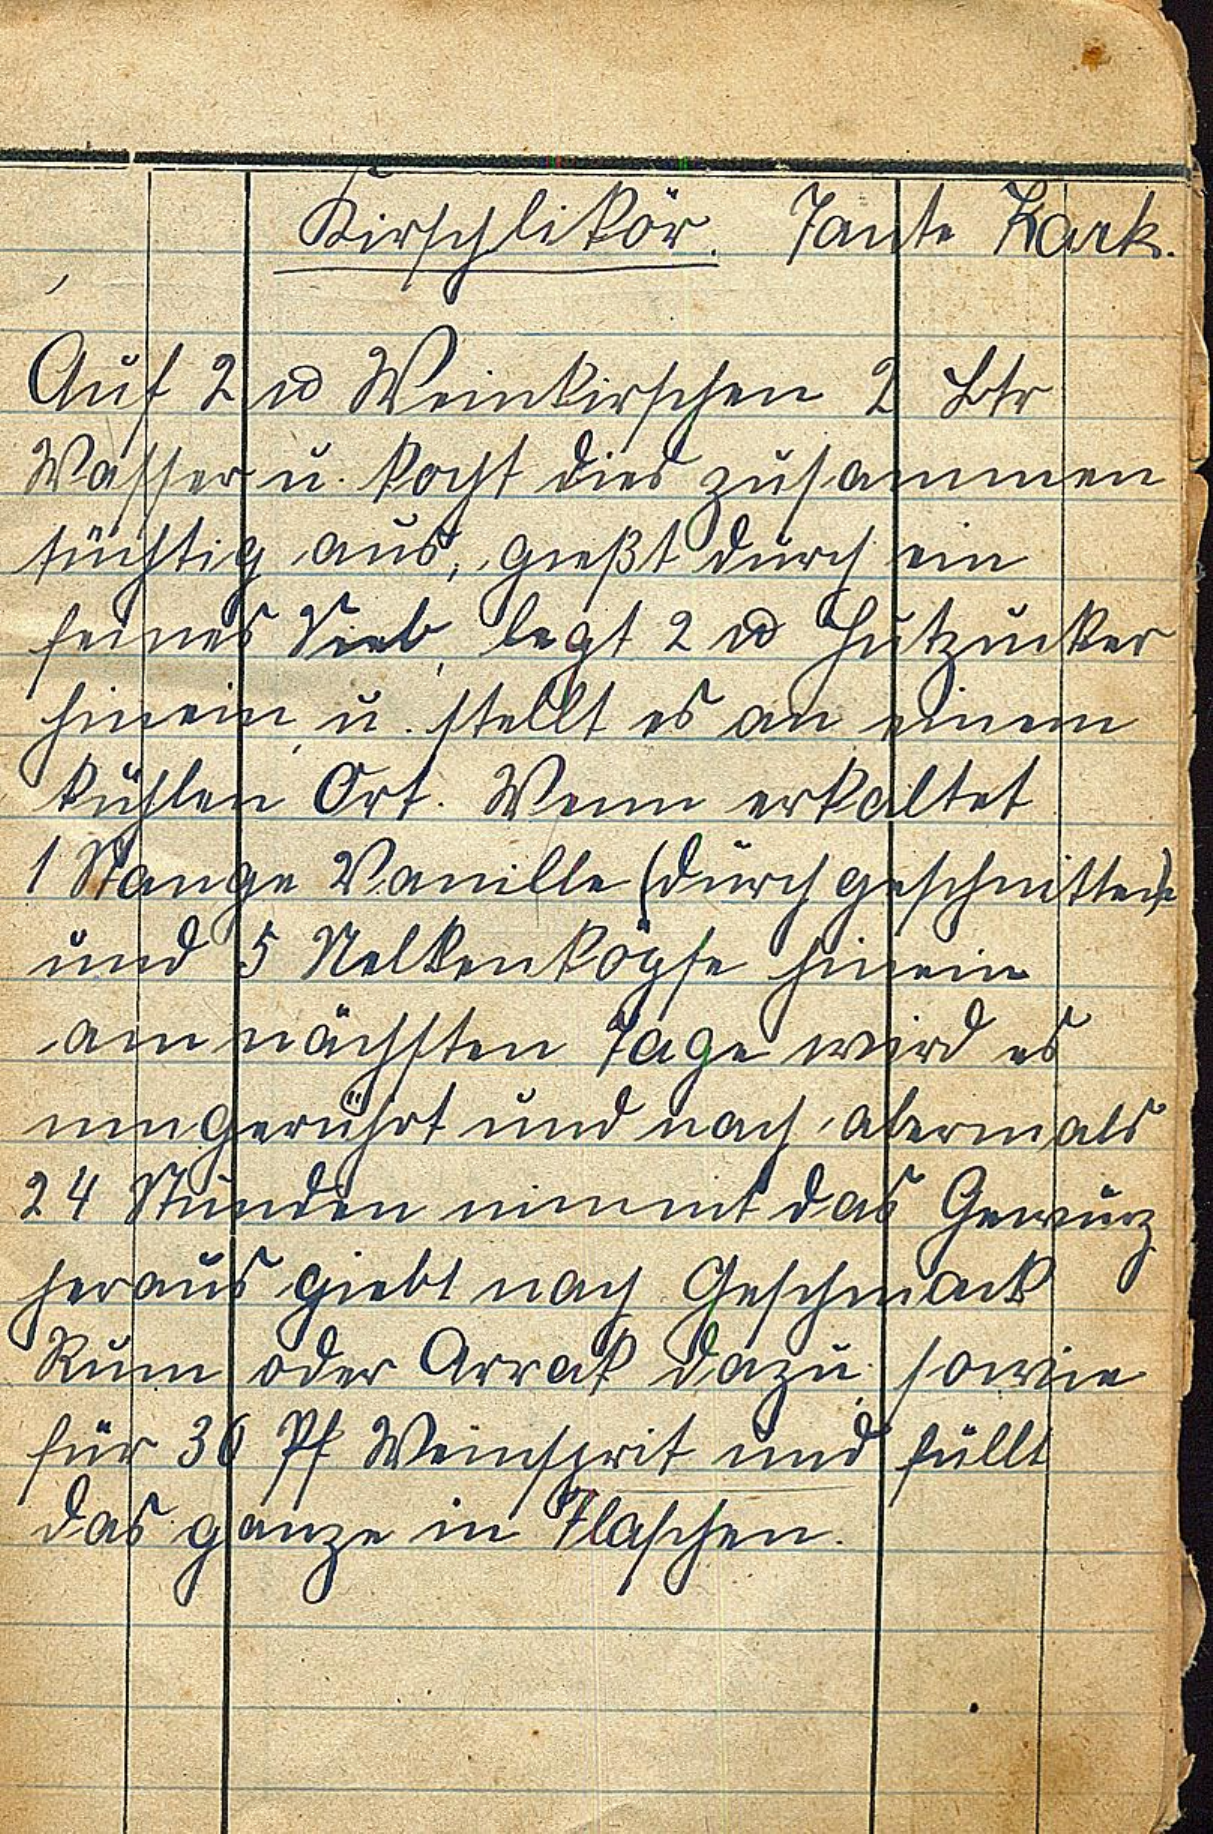 Kirschlikör. Tante Kark.
Auf 2 ℔ Weinkirschen 2 Ltr
Wasser u. kocht dies zusammen
tüchtig aus, gießt durch ein
feines Sieb, legt 2 ℔ Hutzucker
hinein, u. stellt es an einem
kühlen Ort. Wenn erkaltet
1 Stange Vanille (durchgeschnitten)
und 5 Nelkenköpfe hinein
am nächsten Tage wird es
umgerührt und nach abermals
24 Stunden nimmt das Gewürz
heraus giebt nach Geschmack
Rum oder Arrak dazu, sowie
für 30 Pf Weinsprit und füllt
das ganze in Flaschen.